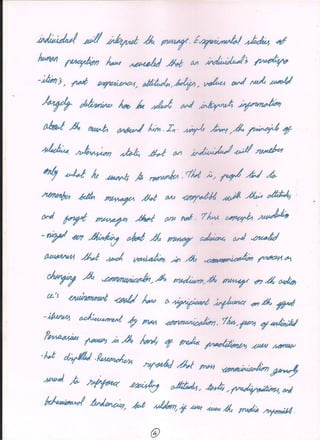 individual will interpret the message. Experimental studies of
human perception have revealed that an individual's predispo
-ition's, past experiences, attitudes, beliefs, values and needs would
largely determine how he selects and interprets information
about the events around him. In simple terms, the principle of
selective retension states that an individual will remember
only what he wants to remember. That is, people tend to
remember better messages that are compatible with their attitudes
and forget messages that are not. These concepts revolutio
-nized our thinking about the message and created
awareness that such variation in the communication process as
changing the communicator, the medium, the message or the audien
ce's environment could have a significant influence on the effect
-iveness achievement by mass communication. Thus, fears of unlimited
Persuasive power in the hands of media practitioners were somew
-hat dispelled. Researchers reported that mass communication generally
served to reinforce existing attitudes, tastes, predispositions, and
behavioural tendencies, but seldom, if ever were the media responsible.
4